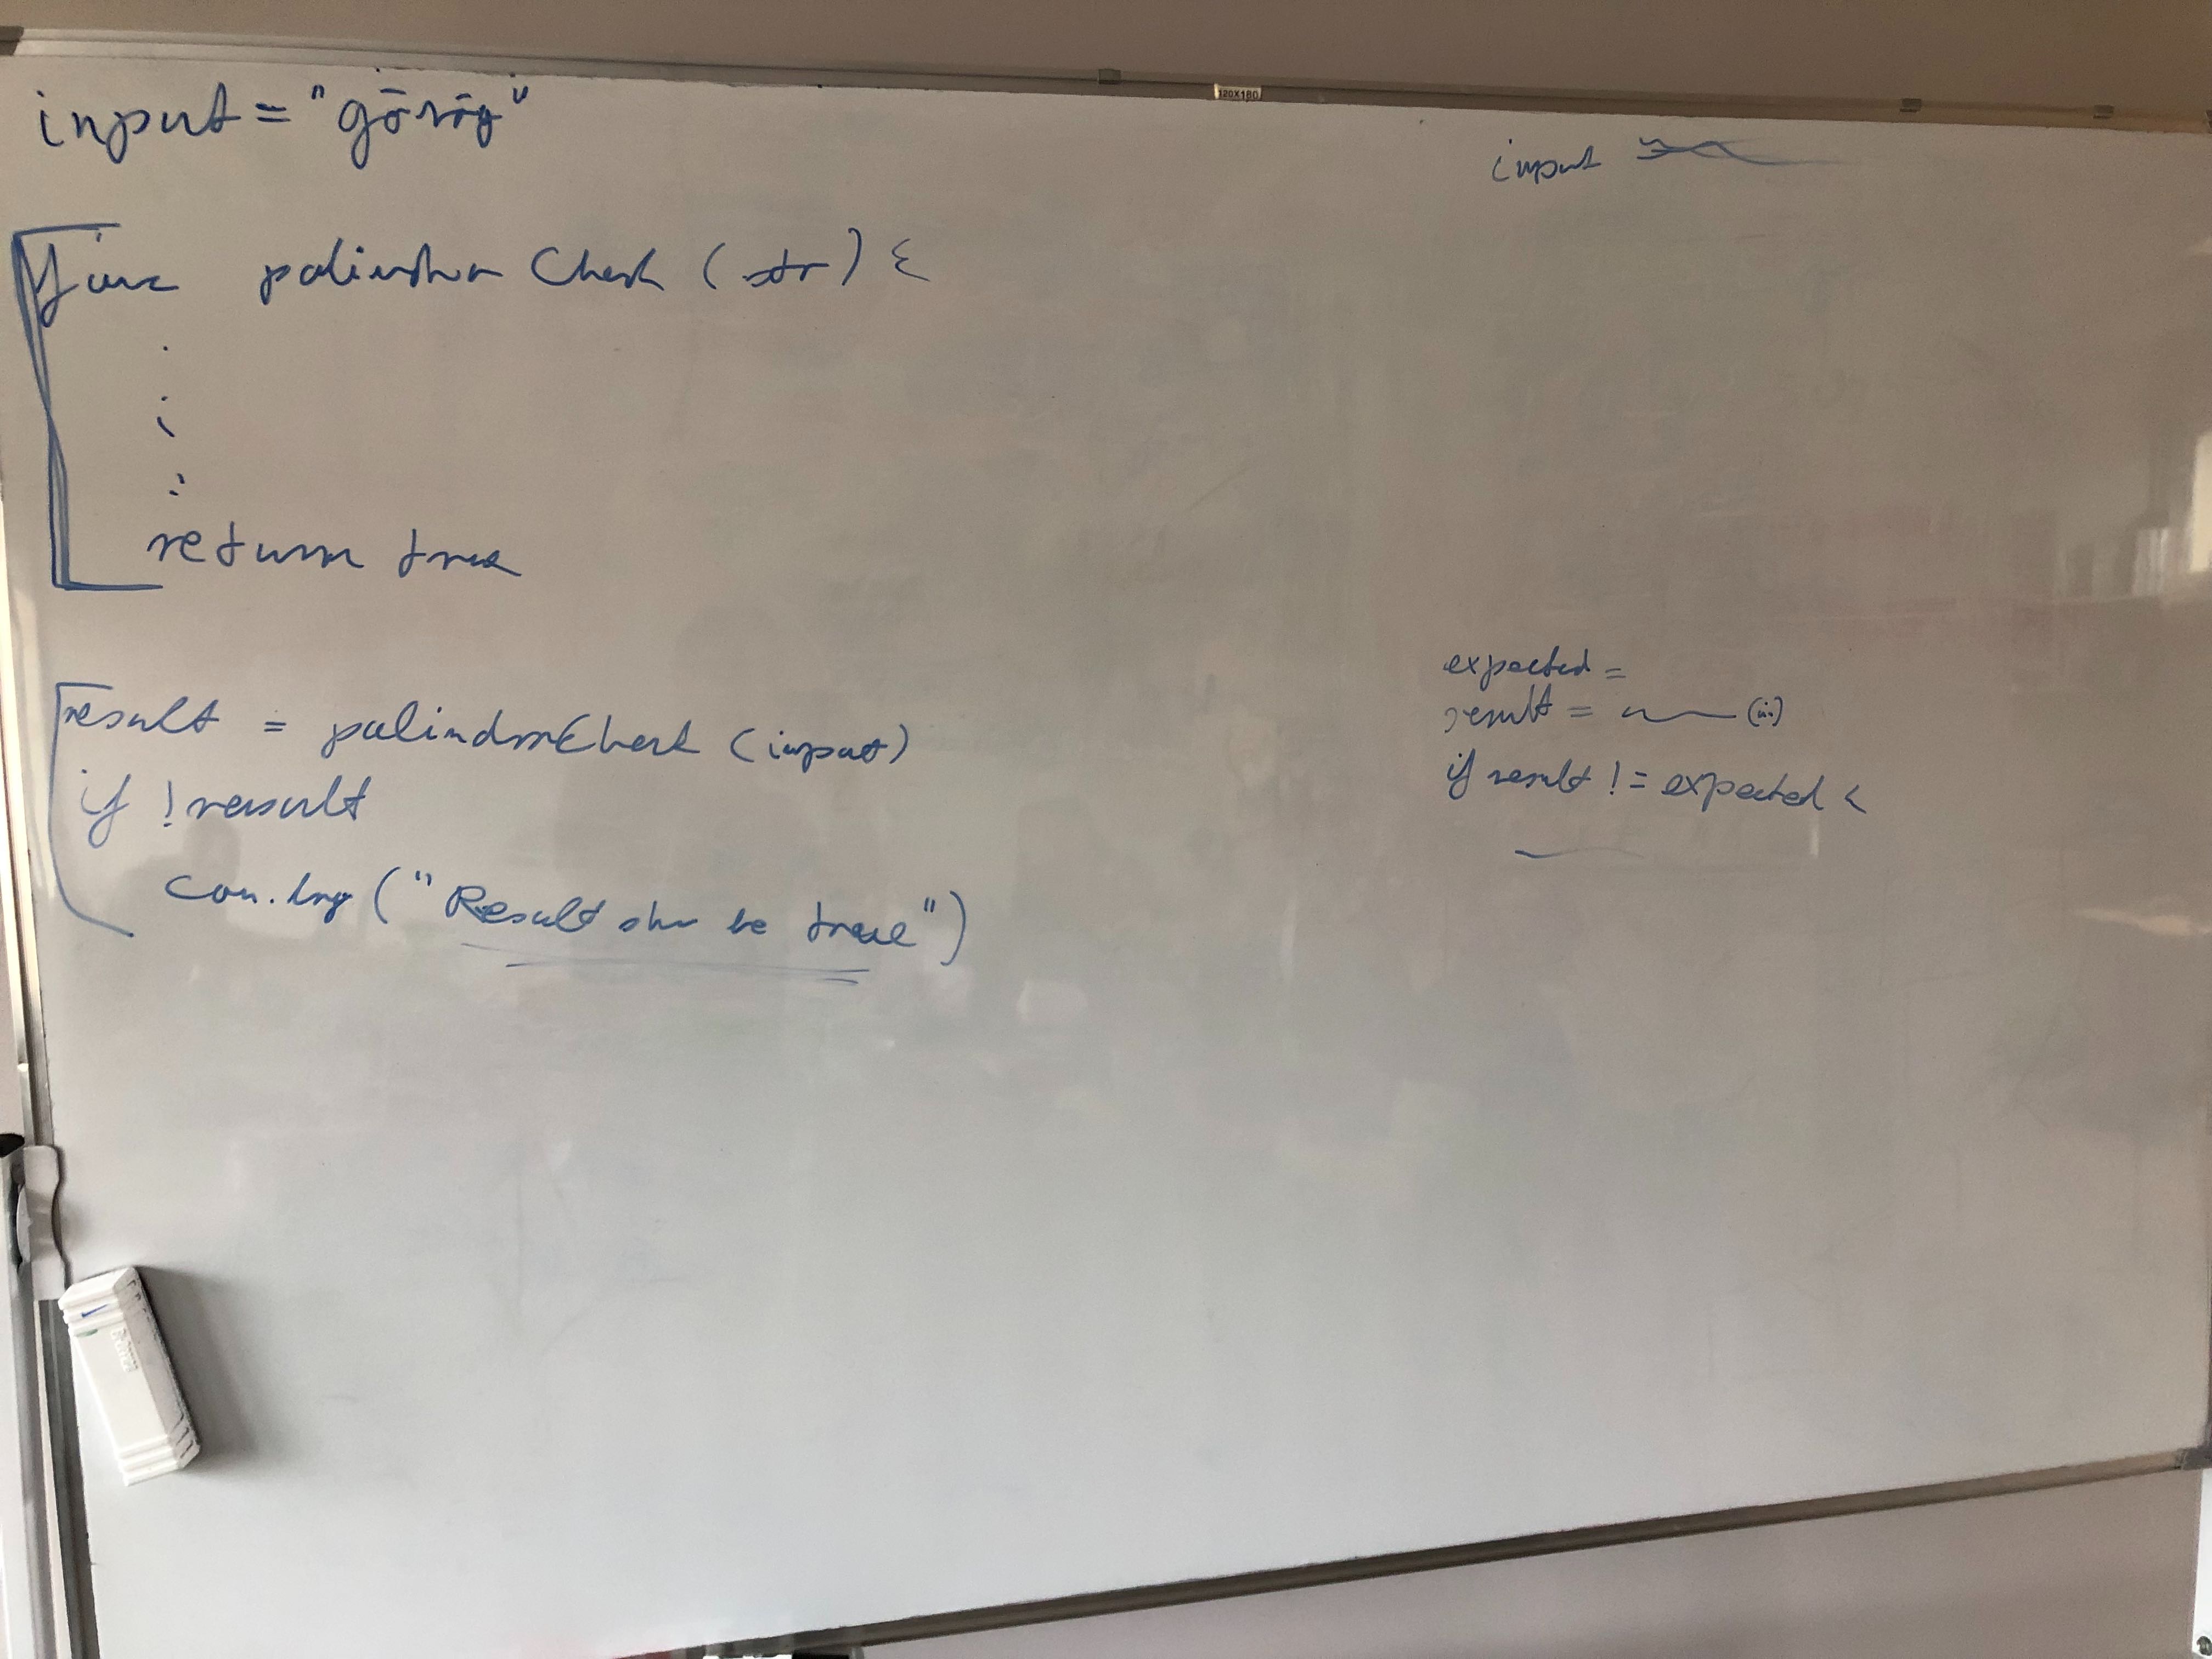 input = "görög"
func palindrom Check (str) {
.
:
:
return true
result = palindromCheck (input)
if !result
con.log ("Result sho be true")
120X180
input =
expected =
result = (in)
if result != expected {